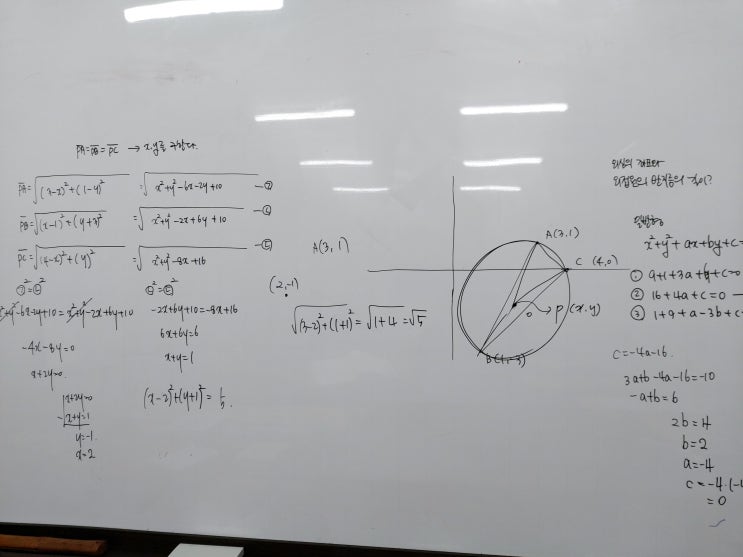 P̅A̅=P̅B̅=P̅C̅ → x,y를 구한다.
P̅A̅=√(3-x)²+(1-y)² =√x²+y²-6x-2y+10 -㉠
P̅B̅=√(x-1)²+(y+3)² =√x²+y²-2x+6y+10 -㉡
P̅C̅=√(4-x)²+(y)² =√x²+y²-8x+16
㉠²=㉡²
x²+y²-6x-2y+10=x²+y²-2x+6y+10
-4x-8y=0
x+2y=0.
x+2y=0
-x+y=1
y=-1.
x=2
-2x+6y+10=-8x+16
6x+6y=6
x+y=1
(x-2)²+(y+1)²=
A(3,1)
(2,-1)
√(3-2)²+(1+1)²=√1+4=√5
A(3,1)
C (4,0)
P (x,y)
B(1,-3)
외심의 좌표와
외접원의 반지름의 길이?
x²+y²+ax+by+c=
① 9+1+3a+b+c=0
② 16+4a+c=0 -
③ 1+9+a-3b+c
c=-4a-16.
3a+b-4a-16=-10
-a+b=6
2b=4
b=2
a=-4
c=-4·(-4
=0